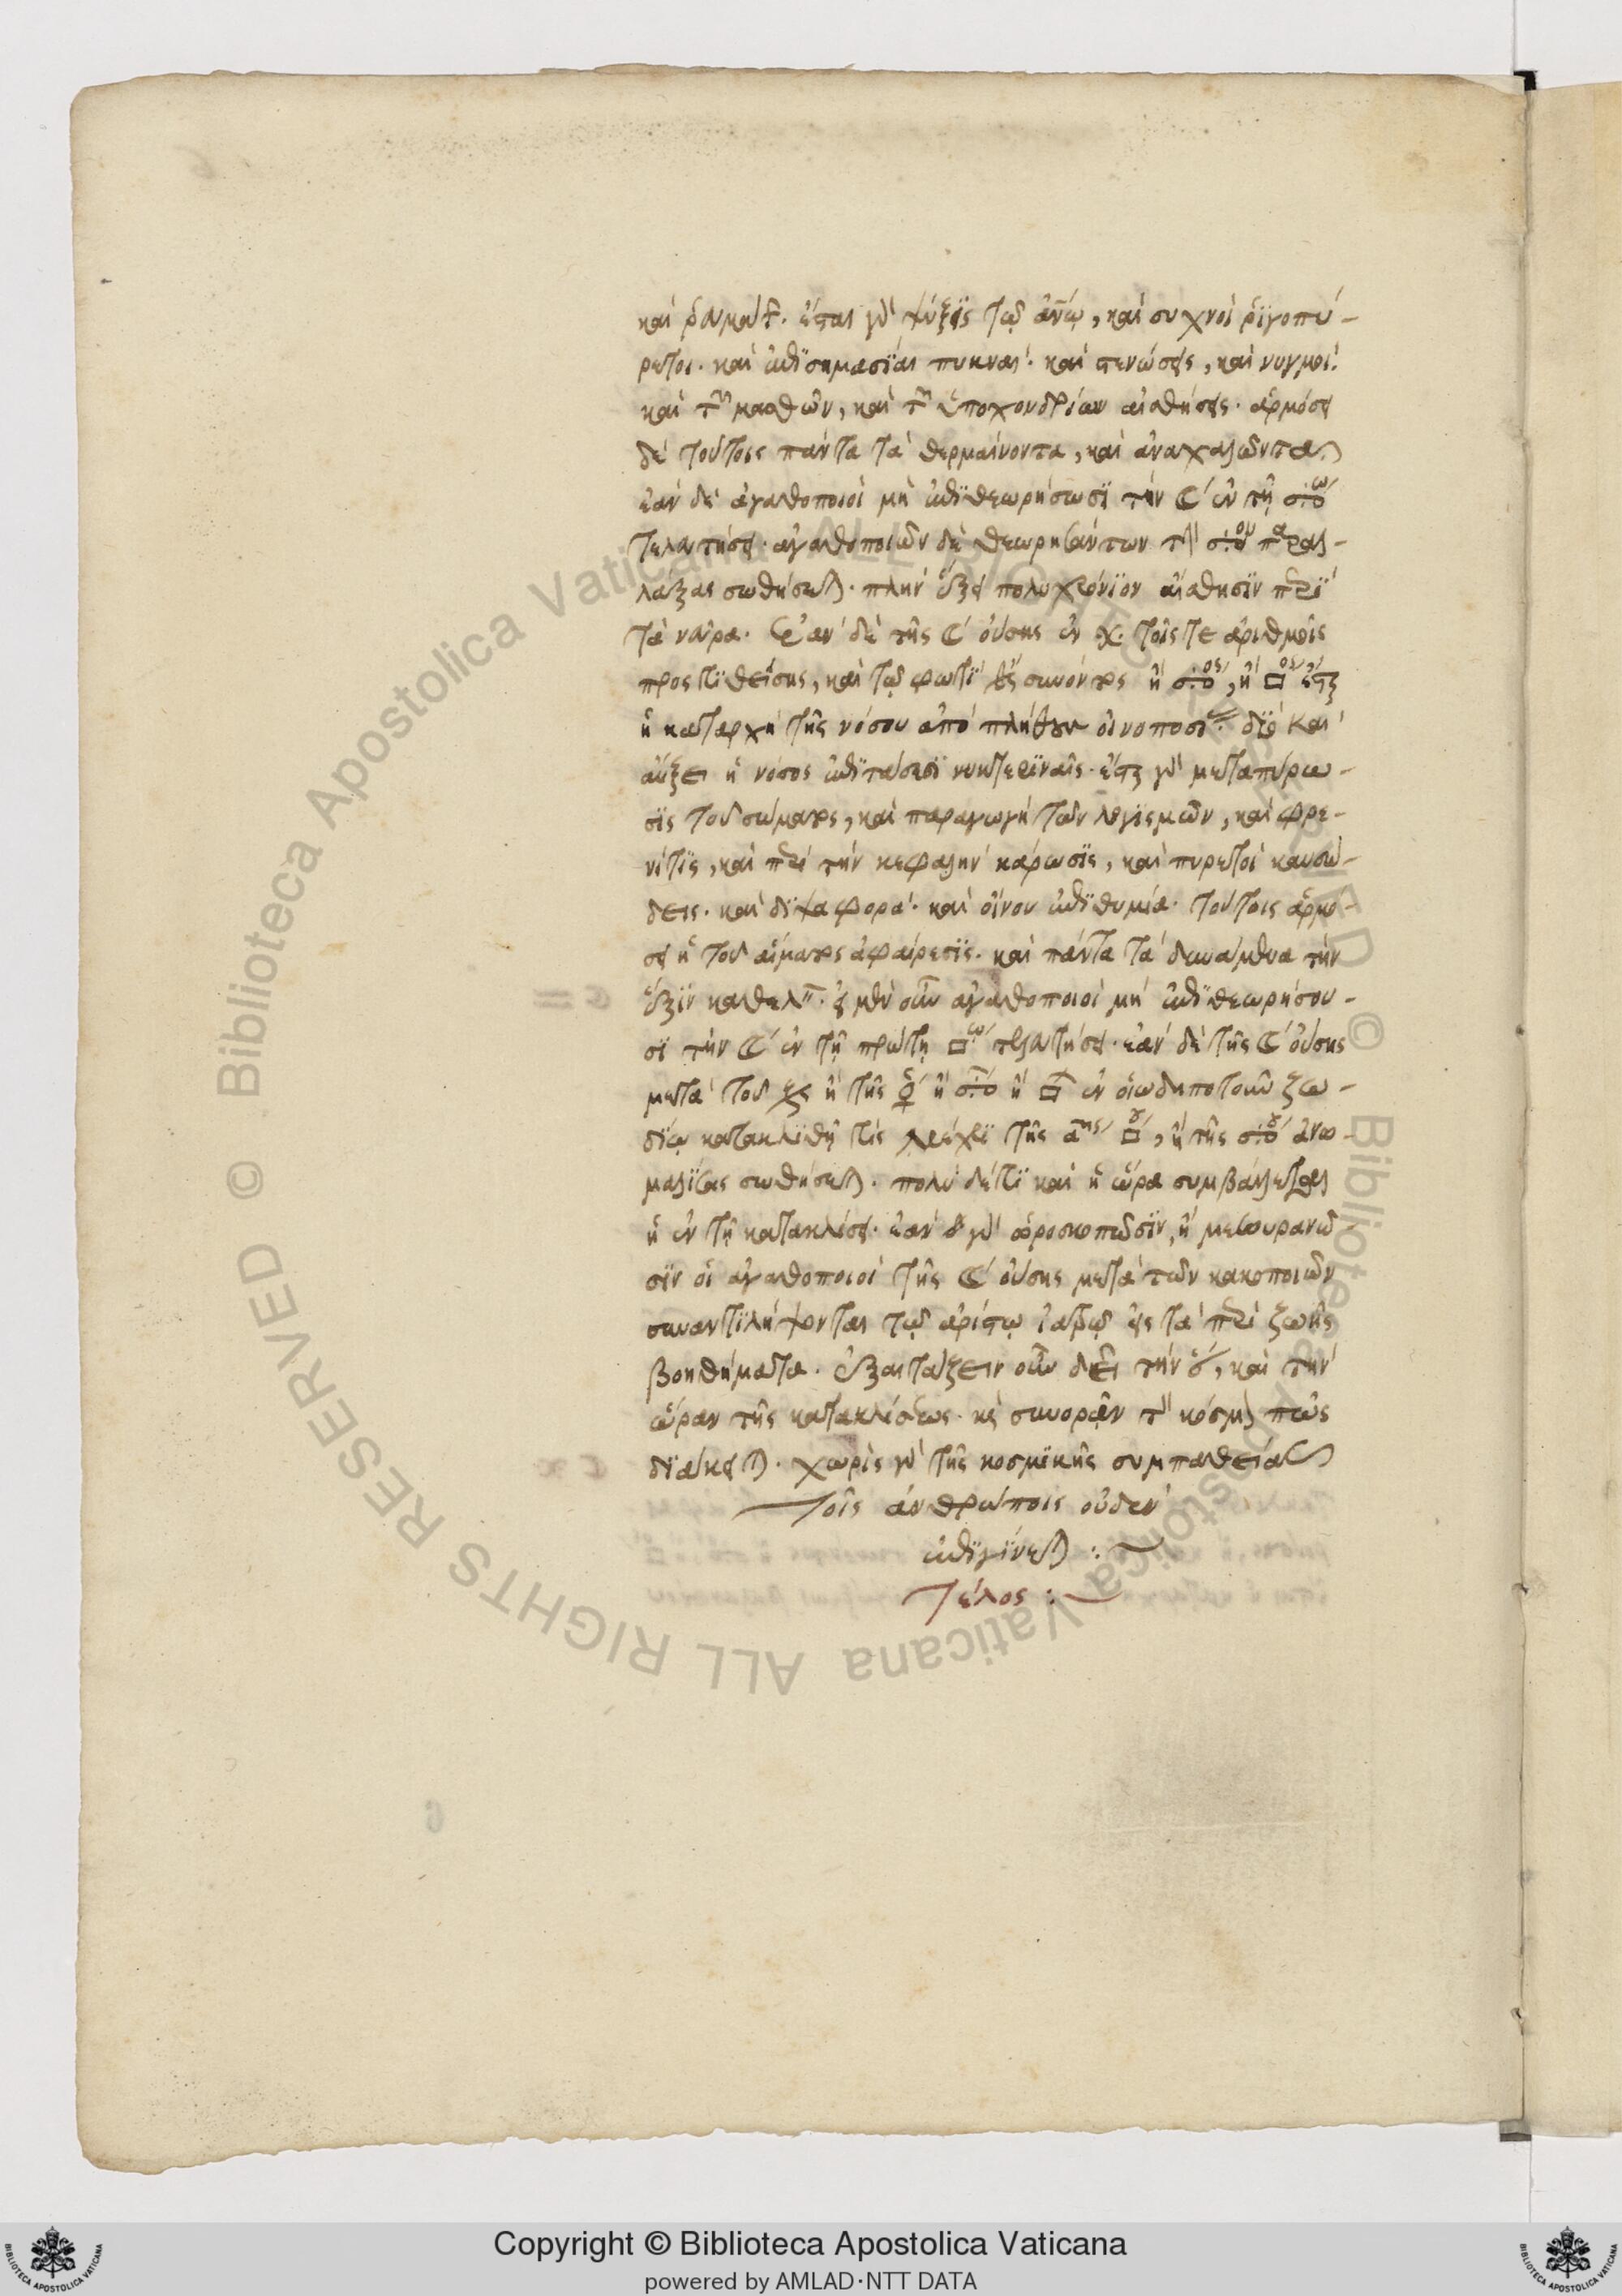 καὶ ῥευματ. ἔσται γὰρ ψύξις τῷ ἀνῳ, καὶ συχνοὶ ῥιγοπύ-
ρετοι. καὶ ἐπισημασίαι πυκναί. καὶ στενώσεις, καὶ νυγμοί.
καὶ τῶν μασθῶν, καὶ τῶν ὑποχονδρίων αἰσθήσεις. ἁρμόσει
δὲ τούτοις πάντα τὰ θερμαίνοντα, καὶ ἀναχαλῶντα
ἐὰν δὲ ἀγαθοποιοὶ μὴ ἐπιθεωρήσωσι τὴν ☾ ἐν τῇ
τελευτήσει. ἀγαθοποιῶν δὲ θεωρησάντων παραλ-
λάξας σωθήσεται. πλὴν ἕξει πολυχρόνιον αἴσθησιν περὶ
τὰ νεῦρα. ἐὰν δὲ τῆς ☾ οὔσης ἐν τοῖς τε ἀριθμοῖς
προστιθείσης, καὶ τῷ φωτὶ ἢ ἢ □ος ἔσται
ἡ καταρχὴ τῆς νόσου ἀπὸ πλήθου οἰνοποσίας. διὸ καὶ
αὔξει ἡ νόσος ἐπιτάσεσι νυκτεριναῖς. ἔσται γὰρ μεταπύρω-
σις τοῦ σώματος, καὶ παραγωγὴ τῶν λογισμῶν, καὶ φρε-
νῖτις, καὶ περὶ τὴν κεφαλὴν κάρωσις, καὶ πυρετοὶ καυσώ-
δεις. καὶ δίψα φορά. καὶ οἴνου ἐπιθυμία. τούτοις ἁρμό-
σει ἡ τοῦ αἵματος ἀφαίρεσις. καὶ πάντα τὰ δυνάμενα τὴν
ἕξιν καθελεῖν. εἰ μὲν οὖν ἀγαθοποιοὶ μὴ ἐπιθεωρήσου-
σι τὴν ☾ ἐν τῇ πρώτῃ □ω τελευτήσει. ἐὰν δὲ τῆς ☾ οὔσης
μετὰ τοῦ ἢ τῆς ♀ ἢ ἢ □ ἐν οἱωδηποτοῦν ζω-
δίῳ κατακλιθῇ τις μέχρι τῆς αης □ου, ἢ τῆς ἀνω-
μαλίσας σωθήσεται. πολὺ δέ τι καὶ ἡ ὥρα συμβάλλεται
ἡ ἐν τῇ κατακλίσει. ἐὰν γὰρ ὡροσκοπῶσιν, ἢ μεσουρανῶ-
σιν οἱ ἀγαθοποιοὶ τῆς ☾ οὔσης μετὰ τῶν κακοποιῶν
συναντιλήψονται τῷ ἀρίστῳ ἰατρῷ εἰς τὰ περὶ ζωῆς
βοηθήματα. ἐξετάζειν οὖν δεῖ τὴν καὶ τὴν
ὥραν τῆς κατακλίσεως. καὶ συνορᾶν τὸν κόσμον πῶς
διάκειται. χωρὶς γὰρ τῆς κοσμικῆς συμπαθείας
τοῖς ἀνθρώποις οὐδὲν
ἐπιγίνεται :~
Τέλος :~
Copyright © Biblioteca Apostolica Vaticana
powered by AMLAD·NTT DATA